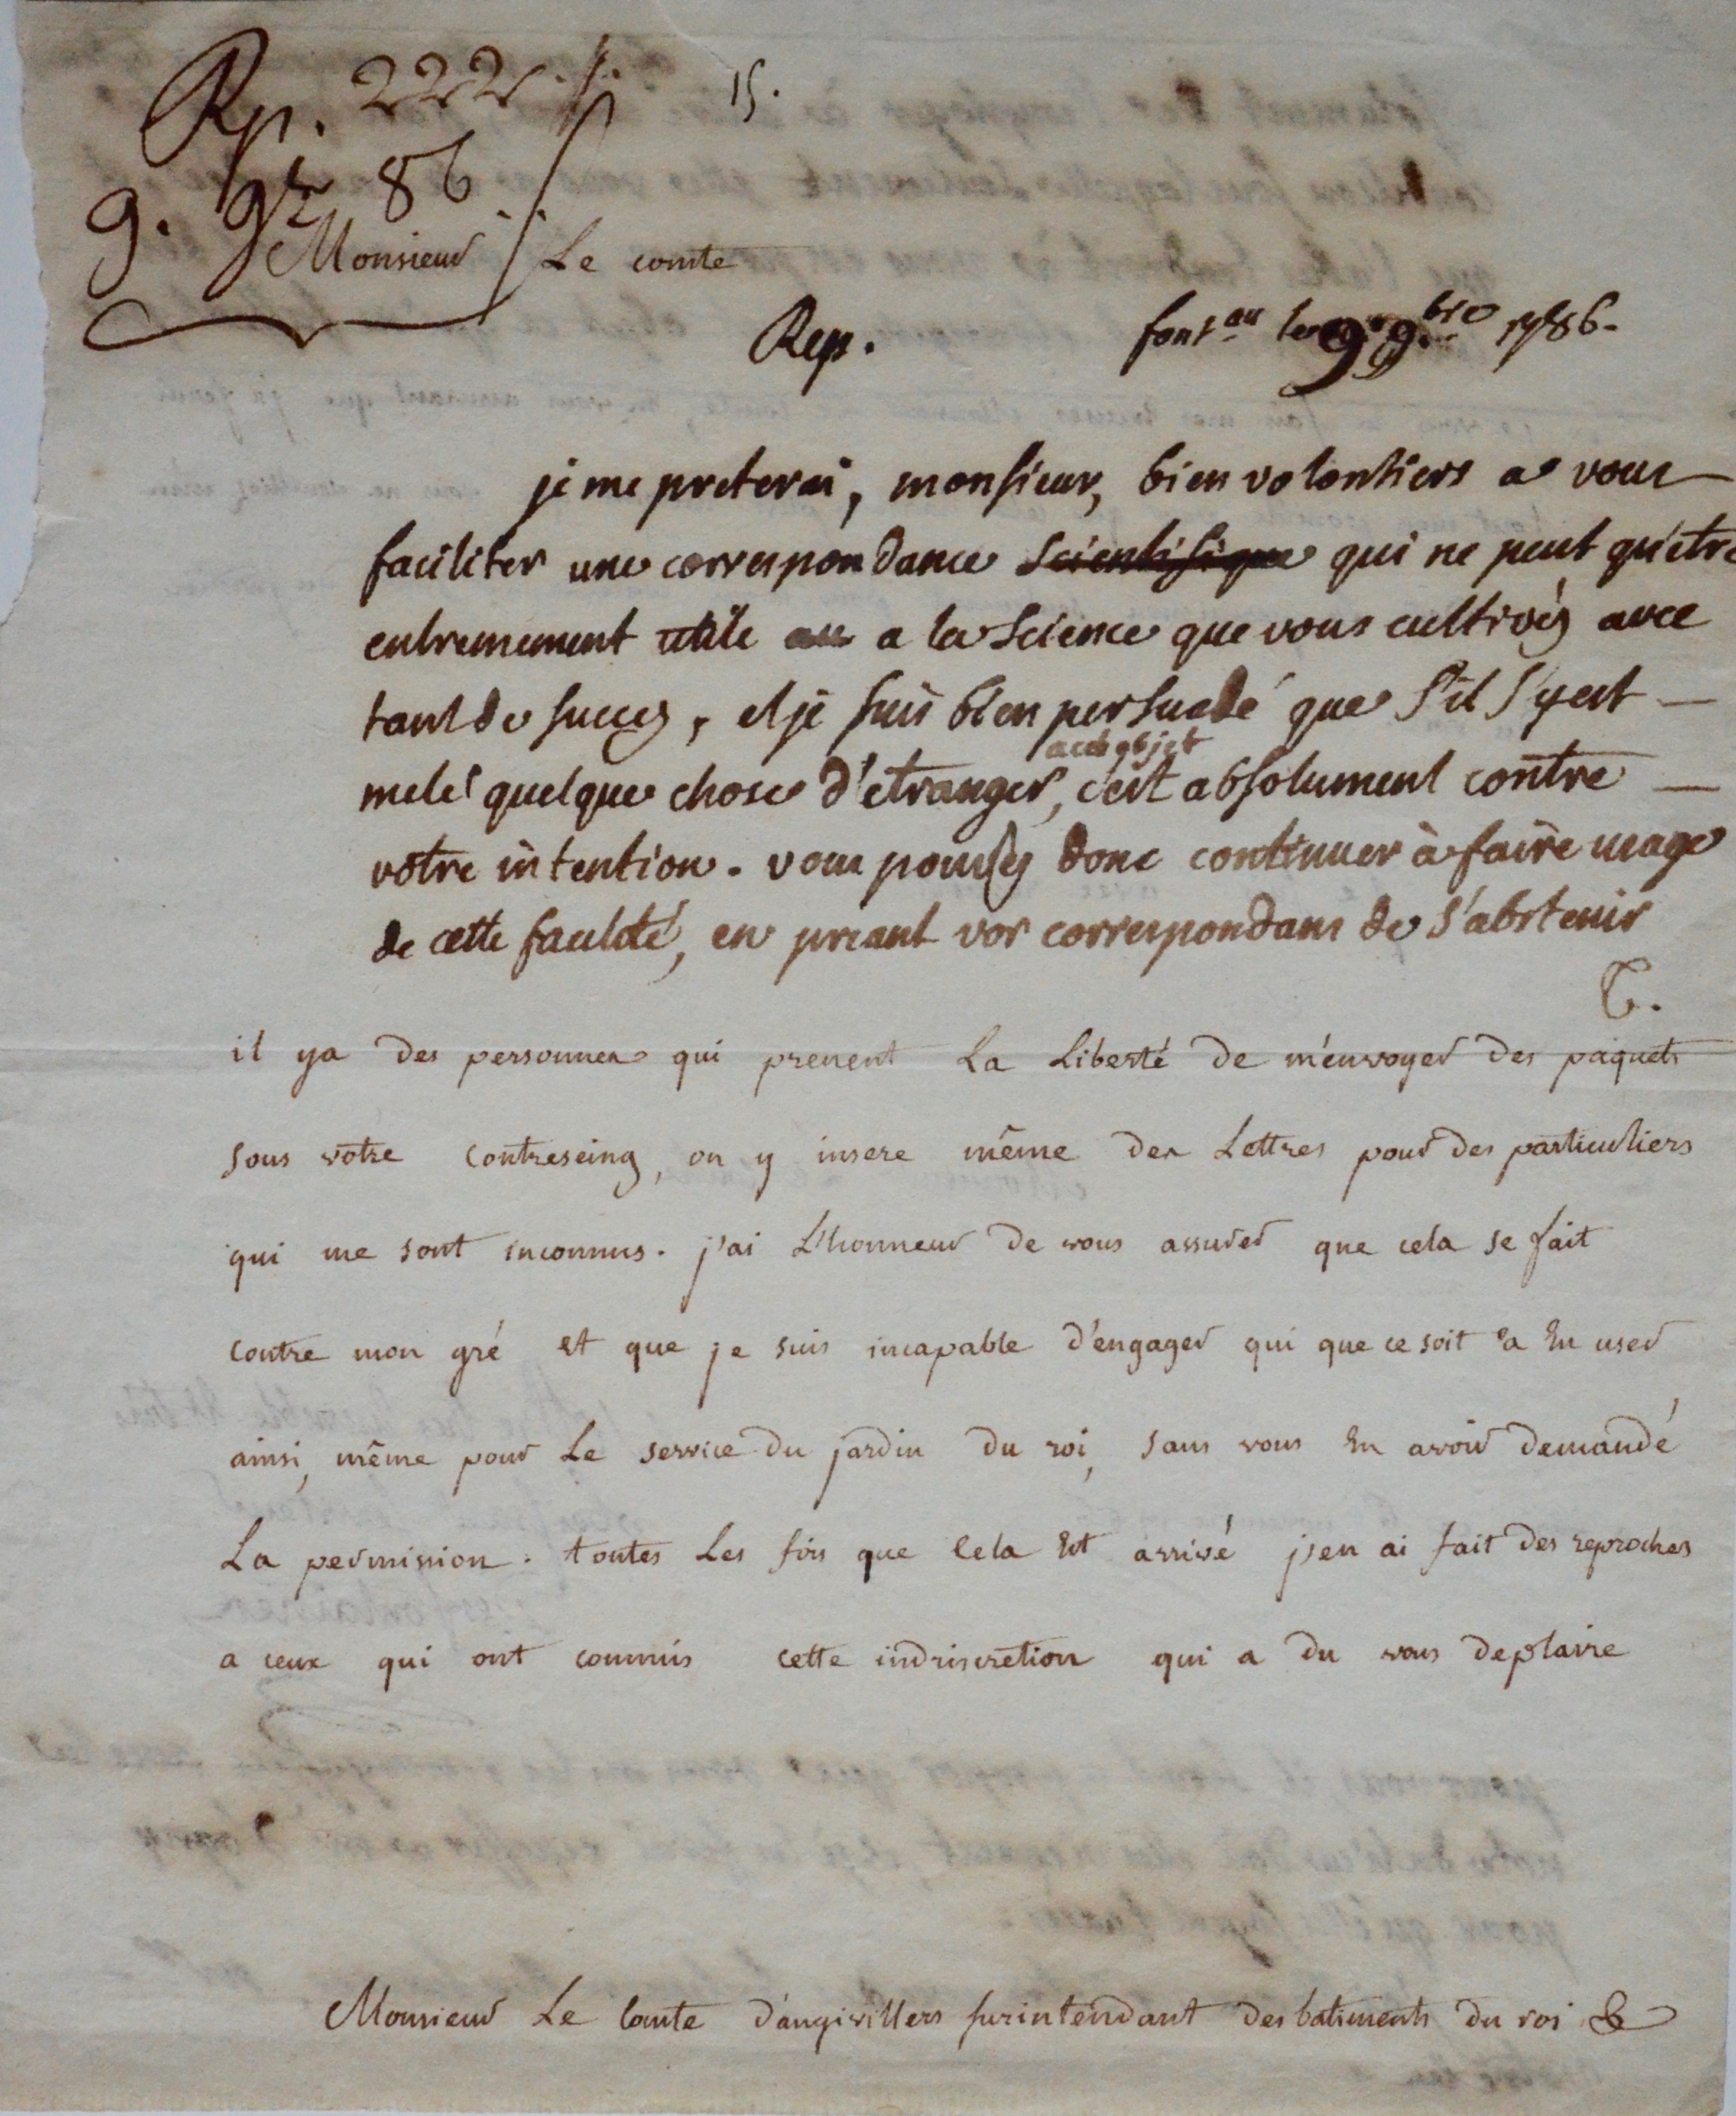 Rp. 222 ./.
15.
9. 9bre 86
Monsieur Le comte
Rep.
font.au le 9 9.bre 1786.
je me preterai, monsieur, bien volontiers a vous
faciliter une correspondance scientifique qui ne peut qu'etre
extremement utile au a la science que vous cultivés avec
tant de succes, et je suis bien persuadé que s'il s'y est
a cet objet
melé quelque chose d'etranger, c'est absolument contre
votre intention. vous pouvés donc continuer à faire usage
de cette faculté, en priant vos correspondans de s'abstenir
T.
il ya des personnes qui prenent La Liberté de m'envoyer des paquets
sous votre contreseing, on y insere même des Lettres pour des particuliers
qui me sont inconnus. j'ai L'honneur de vous assurer que cela se fait
contre mon gré et que je suis incapable d'engager qui que ce soit a En user
ainsi, même pour Le service du jardin du roi, sans vous En avoir demandé
La permission. toutes Les fois que cela Est arrivé j'en ai fait des reproches
a ceux qui ont commis cette indiscretion qui a du vous deplaire
Monsieur Le Comte d'angivillers surintendant des batiments du roi &